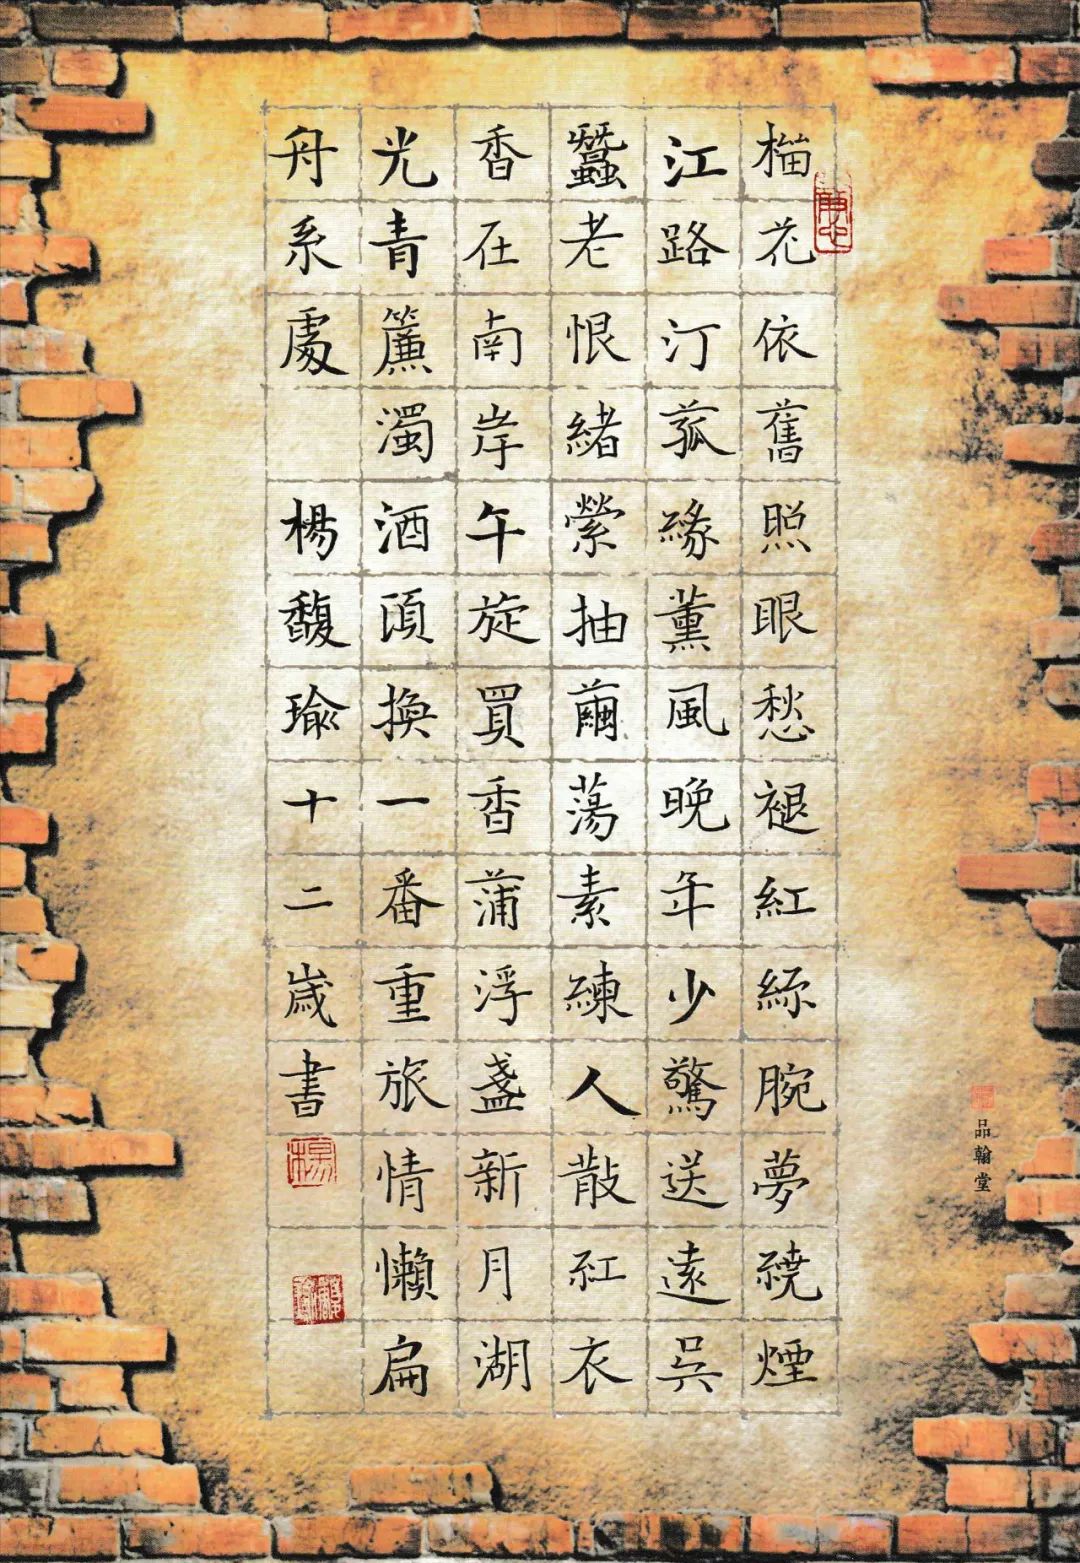 榴花依舊照眼愁褪紅絲腕夢繞煙
江路汀菰緣薰風晚年少驚送遠吳
蠶老恨緒縈抽繭蕩素練人散紅衣
香在南岸午旋買香蒲浮盞新月湖
光青簾濁酒湏換一番重旅情懶扁
舟系處 楊馥瑜十二歲書
楊
品翰堂